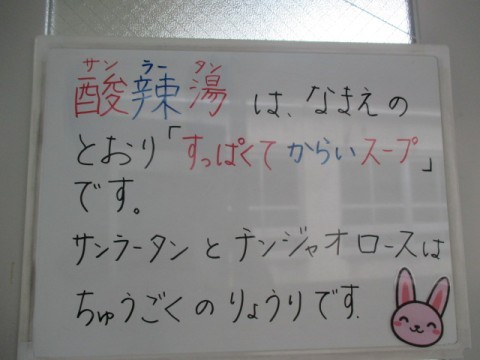 サンラータン
酸辣湯は、なまえの
とおり「すっぱくてからいスープ」
です。
サンラータンとチンジャオロースは
ちゅうごくのりょうりです.